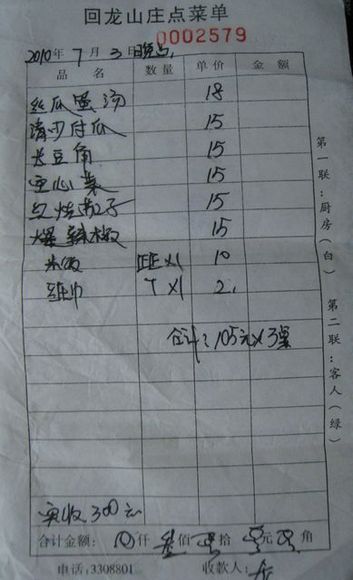 回龙山庄点菜单
0002579
2010年 7月 3日
品名 数量 单价 金额
丝瓜蛋汤 18
清炒付瓜 15
长豆角 15
空心菜 15
红烧茄子 15
爆辣椒 15
米饭 10
纸巾 丁x1 2.
合计：105元x3桌
实收300元
合计金额： 仟 叁佰 拾 元 角
电话：3308801 收款人：
第一联：厨房（白）
第二联：客人（绿）